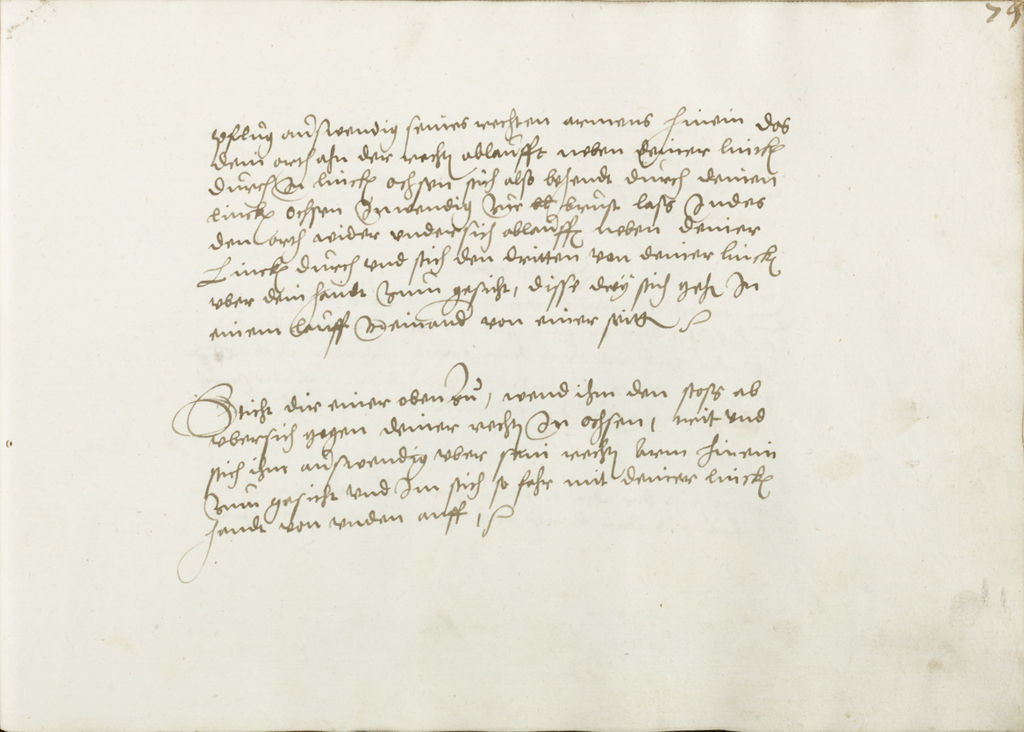 79
pflug auswendig seines rechten armens hinein das
dein orth ahn der recht ablaufft neben deiner linck
durch In linck ochsen stich also behendt durch deinen
linck ochsen Inwendig zur brust lass Indes
den orth wider undersich ablauff neben deiner
Linck durch und stich den dritten von deiner linck
uber dein handt zum gesicht, disse drey stich gehn In
einem lauff von einer seitt
Sticht dir einer oben zu, wend ihm den stoss ab
ubersich gegen deiner recht In ochsen, und
stich ihm auswendig uber sein recht arm hinein
zum gesicht und Im stich so fahr mit deiner linck
handt von unden auff,